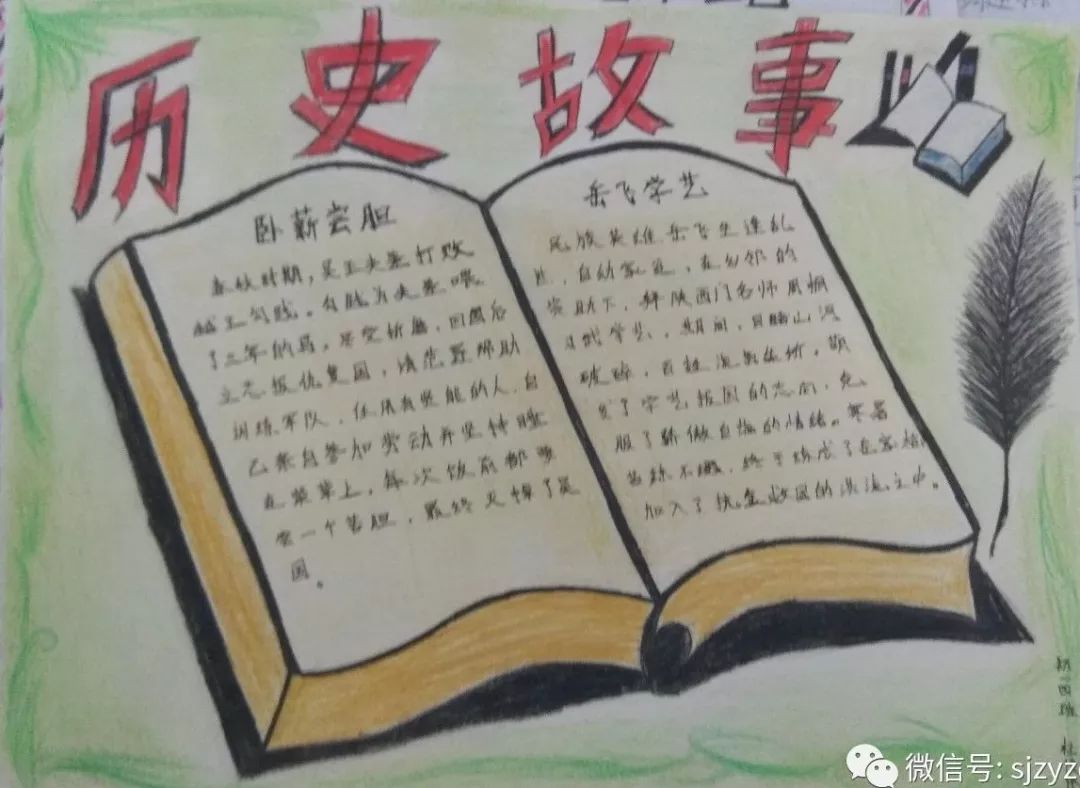 历史故事
卧薪尝胆
春秋时期，吴王夫差打败
越王勾践。勾践为夫差喂
了三年的马，受尽折磨，回国后
立志报仇复国，请范蠡帮助
训练军队，任用有贤能的人，自
己亲自参加劳动并坚持睡
在柴草上，每次饭前都要
尝一个苦胆，最终灭掉了吴
国。
岳飞学艺
民族英雄岳飞生逢乱
世，自幼家贫，在乡邻的
资助下，拜陕西门名师周侗
习武学艺，期间，目睹山河
破碎，百姓流离失所，萌
发了学艺报国的志向，克
服了骄傲自满的情绪。寒暑
苦练不辍，终于练成了岳家枪
加入了抗金救国的洪流之中。
初一四班 杜
微信号: sjzyz